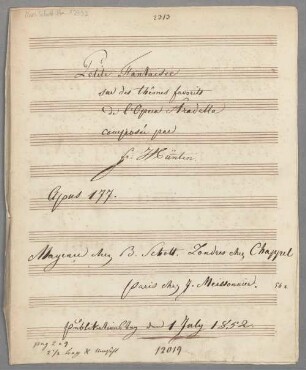 Petite Fantaisie
sur des thêmes favorits
de l'Opera Stradella
composée par
Fr. Hünten
Opus 177.
Mayence chez B. Schott. Londres chez Chappel
(paris chez J. Meissonnier.
publikationstag d 1 July 1852.
pag 2 a 9
12019